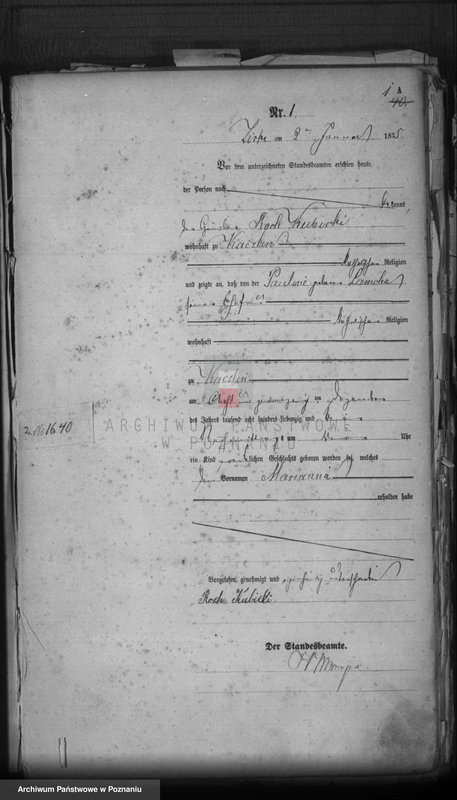 1 A
40.
Nr. 1.
Zirke am 2ten Januar 1875
Vor dem unterzeichneten Standesbeamten erschien heute,
der Person nach
bekannt,
der Häusler Roch Kubicki
wohnhaft zu Kaczlin
katholischer Religion
und zeigte an, daß von der Pauline geborene
seiner Ehefrau
katholischer Religion
wohnhaft
zu Kaczlin
am acht und zwanzigsten Dezember
des Jahres tausend acht hundert siebenzig und vier
Nachmittags um vier Uhr
ein Kind weiblichen Geschlechts geboren worden sei, welches
den Vornamen Marianna
erhalten habe
Vorgelesen, genehmigt und unterschrieben
Roch Kubicki.
Der Standesbeamte.
No 1640
ARCHIWUM PAŃSTWOWE
W POZNANIU
Archiwum Państwowe w Poznaniu